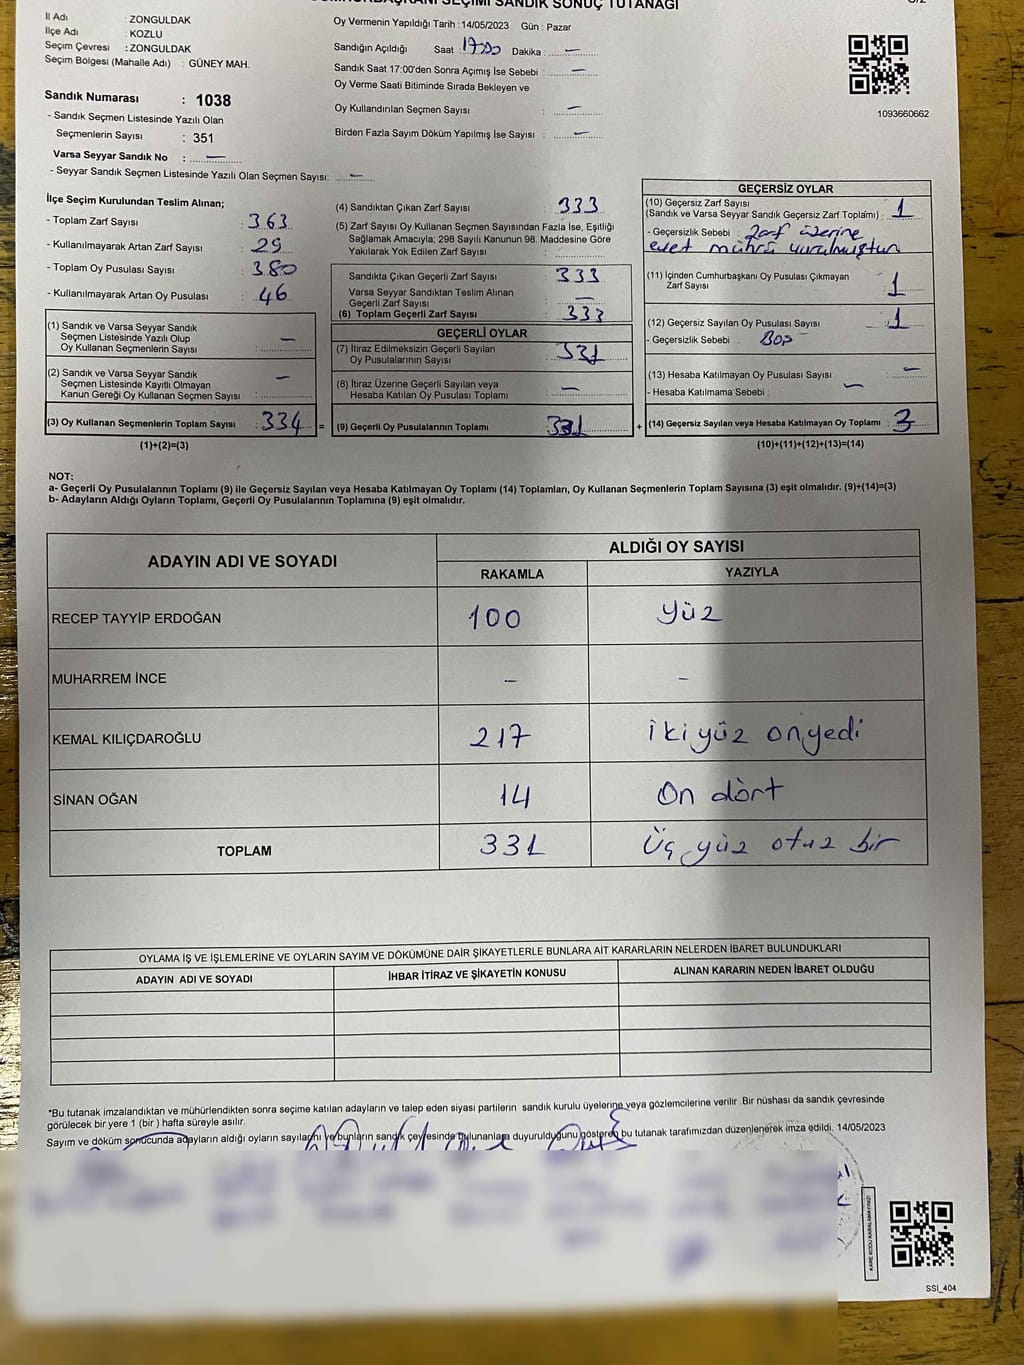 SEÇİMİ SANDIK SONUÇ TUTANAĞI
İl Adı : ZONGULDAK
İlçe Adı : KOZLU
Seçim Çevresi : ZONGULDAK
Seçim Bölgesi (Mahalle Adı) : GÜNEY MAH.
Sandık Numarası : 1038
- Sandık Seçmen Listesinde Yazılı Olan
Seçmenlerin Sayısı : 351
Varsa Seyyar Sandık No : —
- Seyyar Sandık Seçmen Listesinde Yazılı Olan Seçmen Sayısı: —
Oy Vermenin Yapıldığı Tarih : 14/05/2023 Gün : Pazar
Sandığın Açıldığı Saat : 17:00 Dakika : —
Sandık Saat 17:00'den Sonra Açımış İse Sebebi : —
Oy Verme Saati Bitiminde Sırada Bekleyen ve
Oy Kullandırılan Seçmen Sayısı : —
Birden Fazla Sayım Döküm Yapılmış İse Sayısı : —
1093660662
İlçe Seçim Kurulundan Teslim Alınan;
- Toplam Zarf Sayısı : 363
- Kullanılmayarak Artan Zarf Sayısı : 29
- Toplam Oy Pusulası Sayısı : 380
- Kullanılmayarak Artan Oy Pusulası : 46
(1) Sandık ve Varsa Seyyar Sandık
Seçmen Listesinde Yazılı Olup
Oy Kullanan Seçmenlerin Sayısı : —
(2) Sandık ve Varsa Seyyar Sandık
Seçmen Listesinde Kayıtlı Olmayan
Kanun Gereği Oy Kullanan Seçmen Sayısı : —
(3) Oy Kullanan Seçmenlerin Toplam Sayısı : 334 =
(1)+(2)=(3)
(4) Sandıktan Çıkan Zarf Sayısı : 333
(5) Zarf Sayısı Oy Kullanan Seçmen Sayısından Fazla İse, Eşitliği
Sağlamak Amacıyla; 298 Sayılı Kanunun 98. Maddesine Göre
Yakılarak Yok Edilen Zarf Sayısı :
Sandıkta Çıkan Geçerli Zarf Sayısı : 333
Varsa Seyyar Sandıktan Teslim Alınan
Geçerli Zarf Sayısı : —
(6) Toplam Geçerli Zarf Sayısı : 333
GEÇERLİ OYLAR
(7) İtiraz Edilmeksizin Geçerli Sayılan
Oy Pusulalarının Sayısı : 331
(8) İtiraz Üzerine Geçerli Sayılan veya
Hesaba Katılan Oy Pusulası Toplamı : —
(9) Geçerli Oy Pusulalarının Toplamı : 331 +
GEÇERSİZ OYLAR
(10) Geçersiz Zarf Sayısı
(Sandık ve Varsa Seyyar Sandık Geçersiz Zarf Toplamı) : 1
- Geçersizlik Sebebi : Zarf üzerine
evet mührü vurulmuştur
(11) İçinden Cumhurbaşkanı Oy Pusulası Çıkmayan
Zarf Sayısı : 1
(12) Geçersiz Sayılan Oy Pusulası Sayısı : 1
- Geçersizlik Sebebi : Boş
(13) Hesaba Katılmayan Oy Pusulası Sayısı : —
- Hesaba Katılmama Sebebi : —
(14) Geçersiz Sayılan veya Hesaba Katılmayan Oy Toplamı : 3
(10)+(11)+(12)+(13)=(14)
NOT:
a- Geçerli Oy Pusulalarının Toplamı (9) ile Geçersiz Sayılan veya Hesaba Katılmayan Oy Toplamı (14) Toplamları, Oy Kullanan Seçmenlerin Toplam Sayısına (3) eşit olmalıdır. (9)+(14)=(3)
b- Adayların Aldığı Oyların Toplamı, Geçerli Oy Pusulalarının Toplamına (9) eşit olmalıdır.
ADAYIN ADI VE SOYADI
ALDIĞI OY SAYISI
RAKAMLA YAZIYLA
RECEP TAYYİP ERDOĞAN 100 yüz
MUHARREM İNCE - -
KEMAL KILIÇDAROĞLU 217 iki yüz onyedi
SİNAN OĞAN 14 On dört
TOPLAM 331 Üç yüz otuz bir
OYLAMA İŞ VE İŞLEMLERİNE VE OYLARIN SAYIM VE DÖKÜMÜNE DAİR ŞİKAYETLERLE BUNLARA AİT KARARLARIN NELERDEN İBARET BULUNDUKLARI
ADAYIN ADI VE SOYADI İHBAR İTİRAZ VE ŞİKAYETİN KONUSU ALINAN KARARIN NEDEN İBARET OLDUĞU
*Bu tutanak imzalandıktan ve mühürlendikten sonra seçime katılan adayların ve talep eden siyasi partilerin sandık kurulu üyelerine veya gözlemcilerine verilir. Bir nüshası da sandık çevresinde
görülecek bir yere 1 (bir ) hafta süreyle asılır.
Sayım ve döküm sonucunda adayların aldığı oyların sayılarını ve bunların sandık çevresinde bulunanlara duyurulduğunu gösteren bu tutanak tarafımızdan düzenlenerek imza edildi. 14/05/2023
KARE KODU KARALAMAYINIZ!
SSI_404